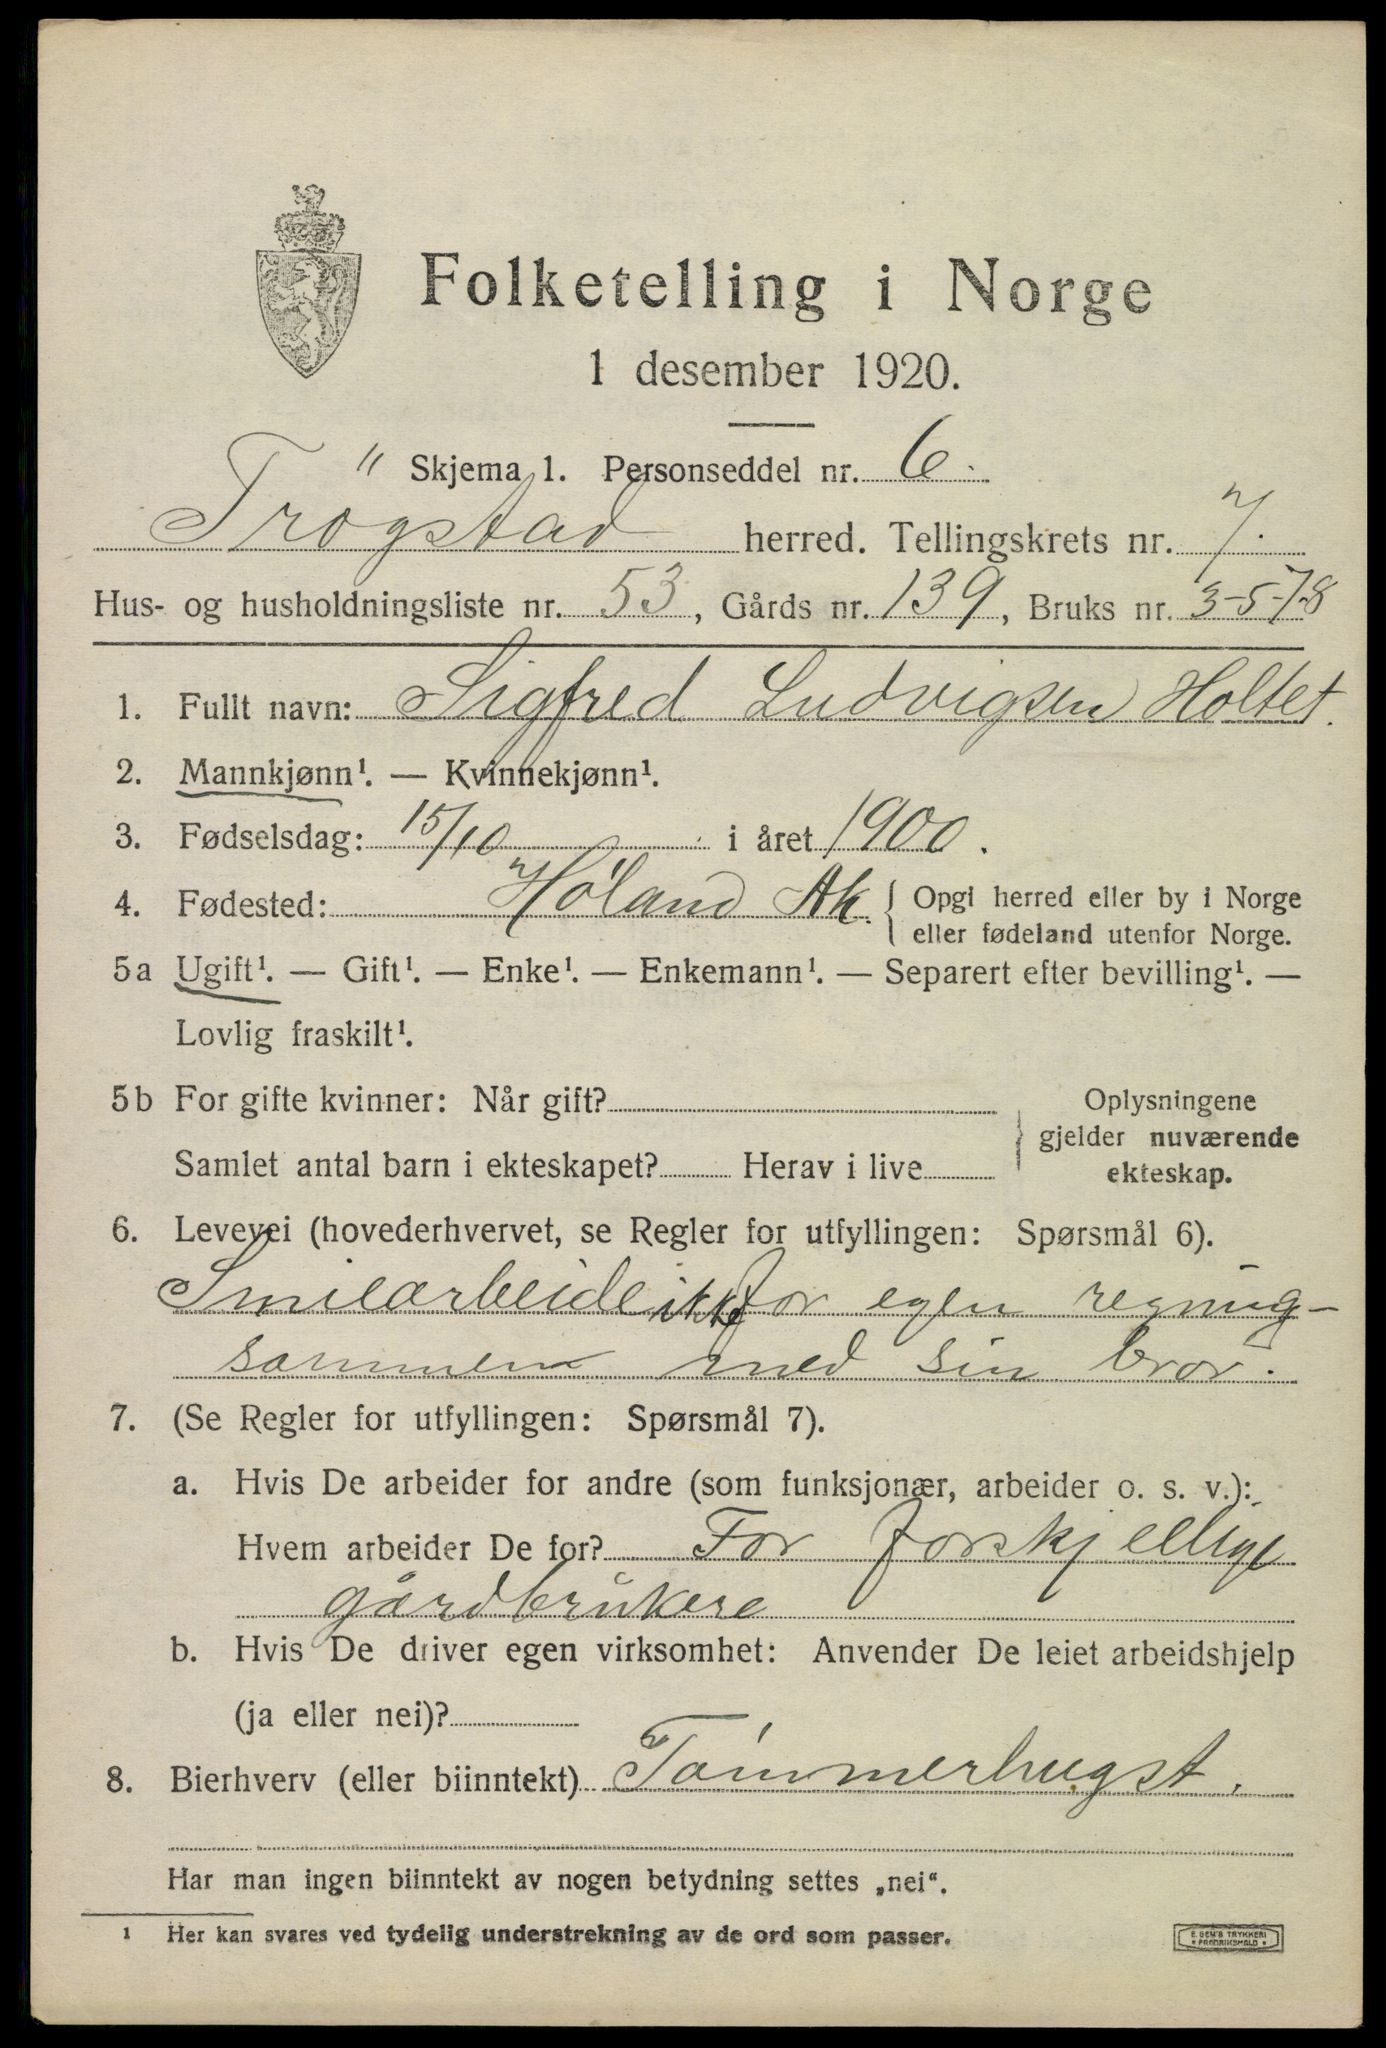 Folketelling i Norge
1 desember 1920.
Skjema 1. Personseddel nr. 6.
Trøgstad herred. Tellingskrets nr. 7.
Hus- og husholdningsliste nr. 53, Gårds nr. 139, Bruks nr. 3-5-7-8
1. Fullt navn: Sigfred Ludvigsen Holtet.
2. Mannkjønn¹. — Kvinnekjønn¹.
3. Fødselsdag: 15/10 i året 1900.
4. Fødested: Høland Ak. { Opgi herred eller by i Norge
eller fødeland utenfor Norge.
5a Ugift¹. — Gift¹. — Enke¹. — Enkemann¹. — Separert efter bevilling¹. —
Lovlig fraskilt¹.
5b For gifte kvinner: Når gift?
Samlet antal barn i ekteskapet? Herav i live
} Oplysningene
gjelder nuværende
ekteskap.
6. Levevei (hovederhvervet, se Regler for utfyllingen: Spørsmål 6).
ikke for egen regning-
sammen med sin bror.
7. (Se Regler for utfyllingen: Spørsmål 7).
a. Hvis De arbeider for andre (som funksjonær, arbeider o. s. v.):
Hvem arbeider De for? For forskjellige
gårdbrukere
b. Hvis De driver egen virksomhet: Anvender De leiet arbeidshjelp
(ja eller nei)?
8. Bierhverv (eller biinntekt) Tømmerhugst.
Har man ingen biinntekt av nogen betydning settes „nei“.
¹ Her kan svares ved tydelig understrekning av de ord som passer.
E. SEM'S TRYKKERI
FREDRIKSHALD